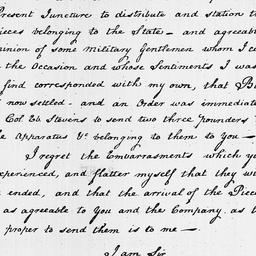 Present Juncture to distribute and station t
ieces belonging to the State — and agreeab
inion of some Military Gentlemen whom I c
the Occasion and whose Sentiments I was
find corresponded with my own, that B
now settled - and an Order was immediate
Col. Stevens to send two three pounders
he Apparatus &c. belonging to them to you —
I regret the Embarrasments which y
experienced, and flatter myself that they wi
ended, and that the arrival of the Piece
as agreeable to You and the Company, as t
proper to send them is to me —
I am Sir